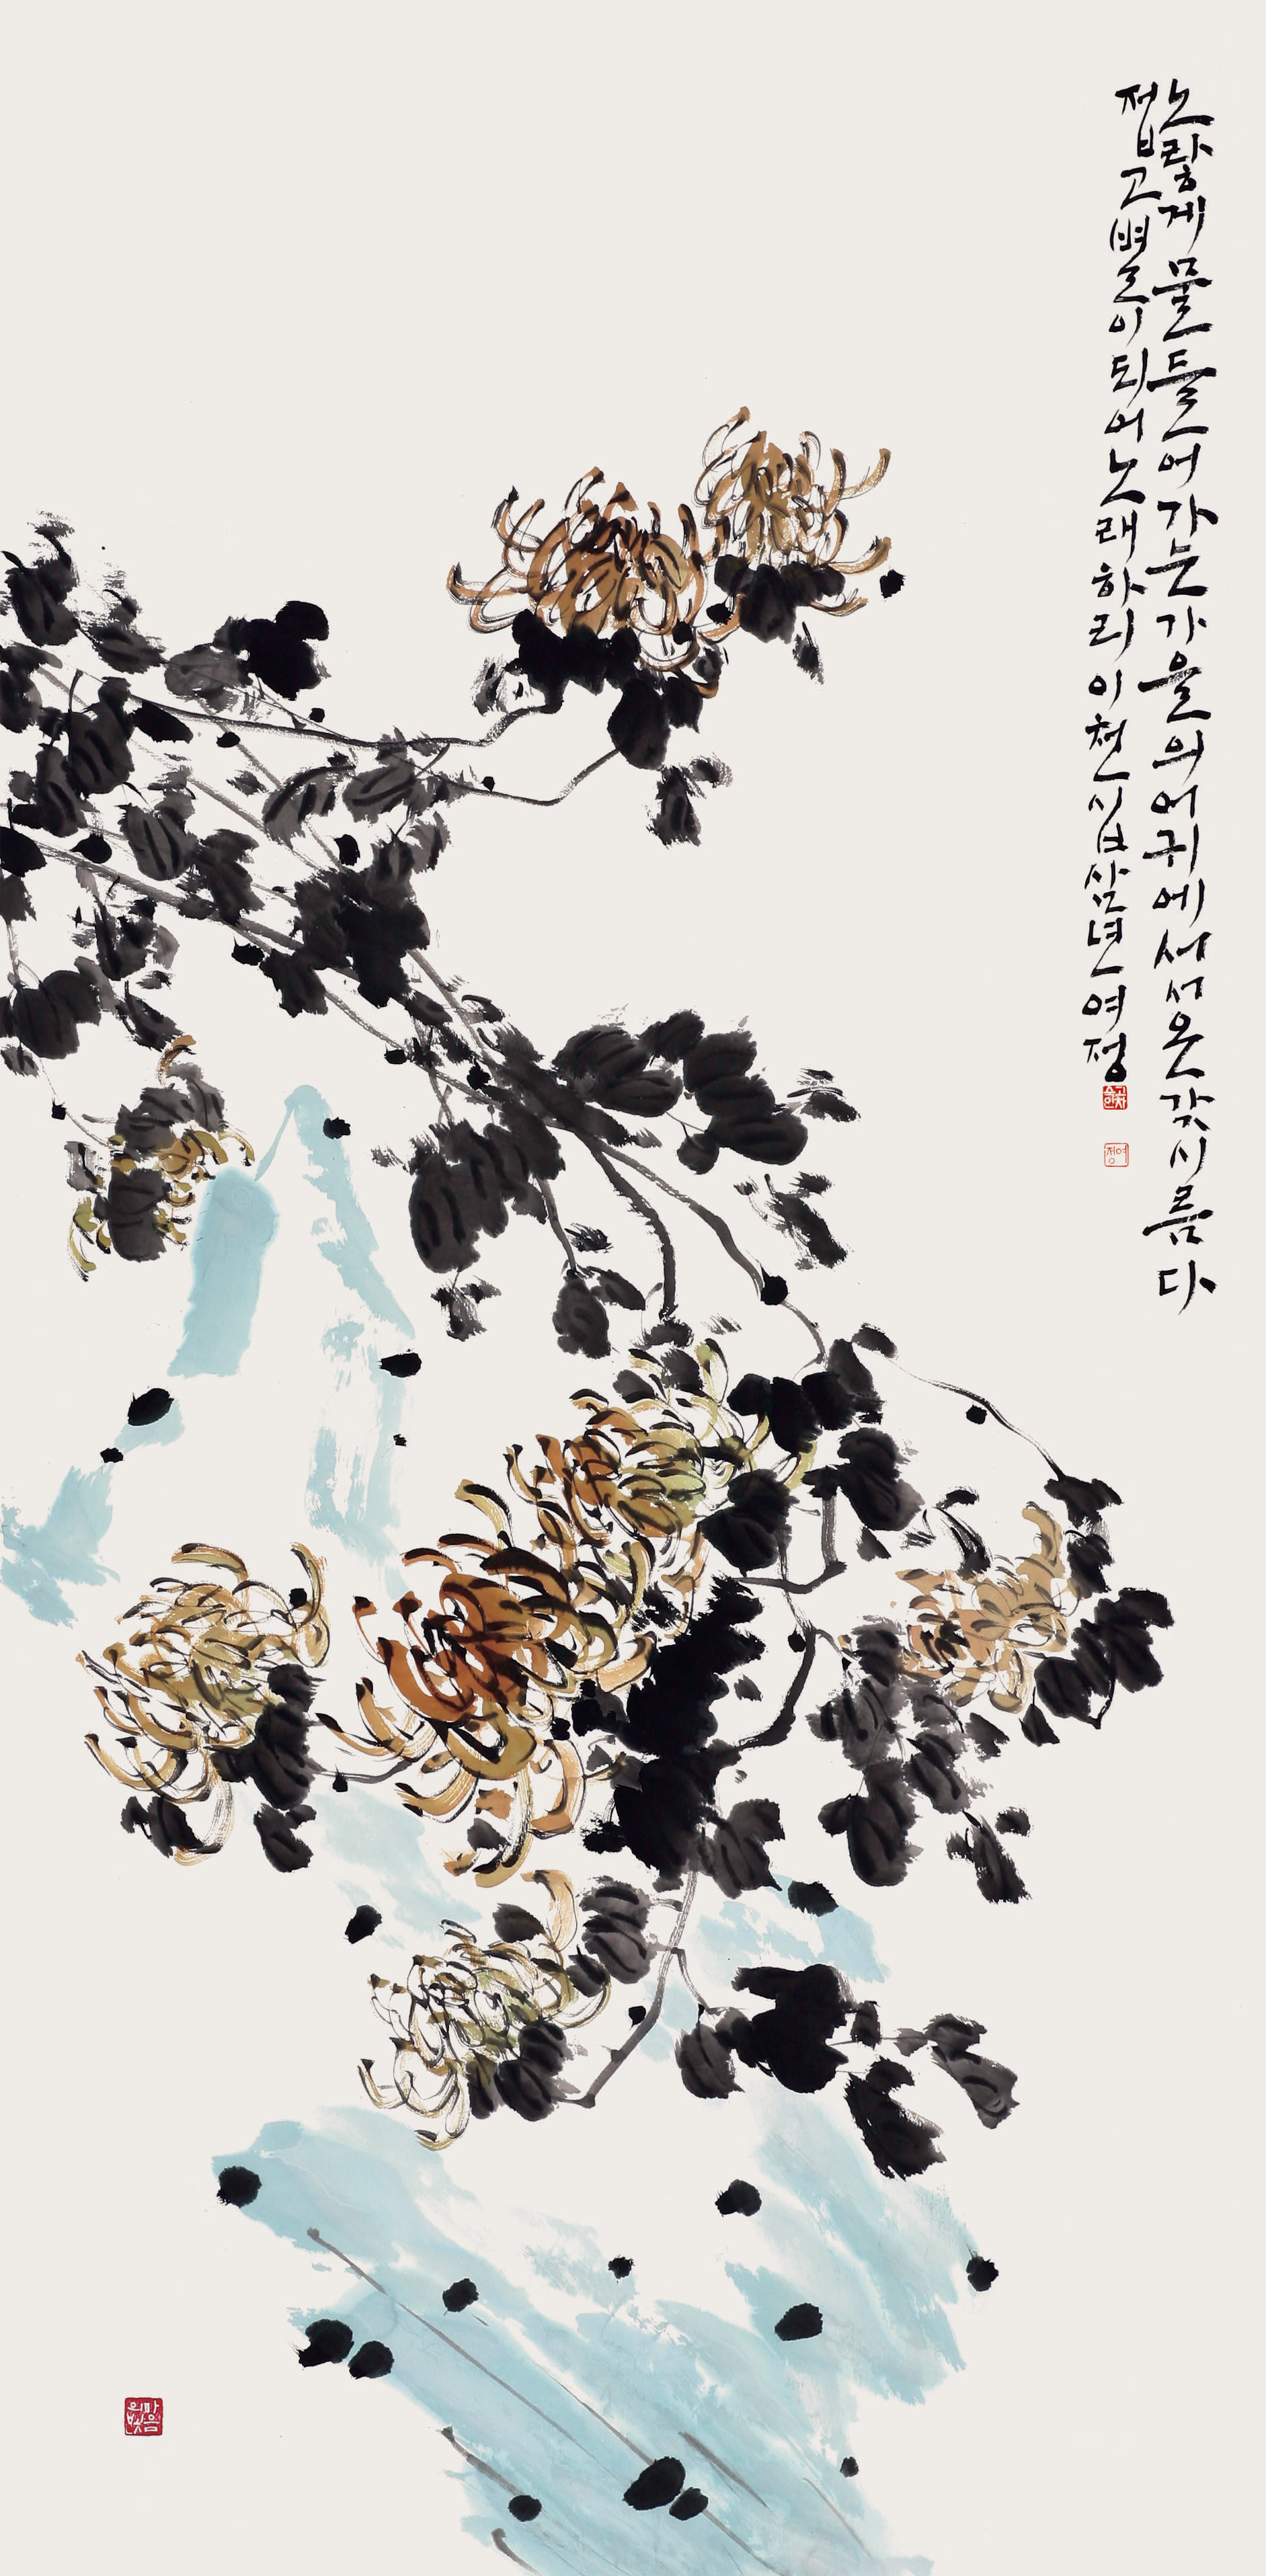 노랗게물들어가는가을의어귀에세서온갖시름다
접고별이되어노래하리이천십삼년여정
여정
마음의벗